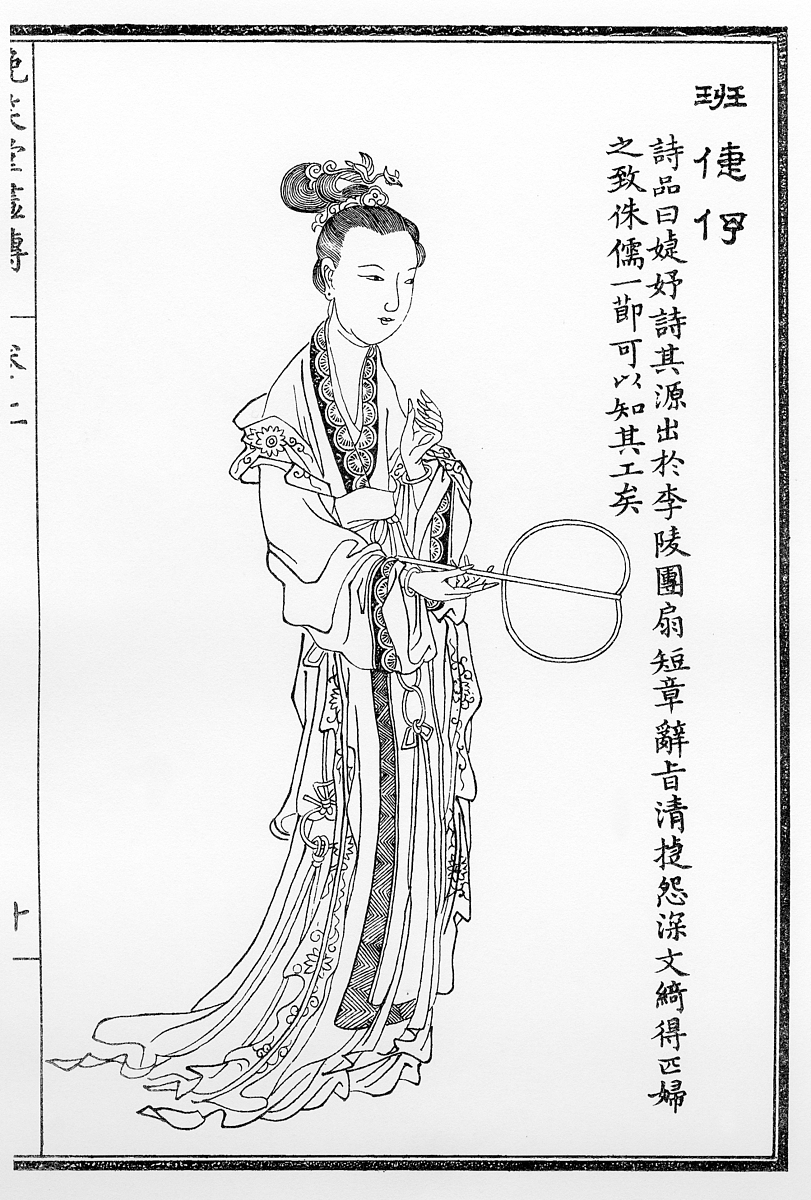 班倢伃
詩品曰婕妤詩其源出於李陵團扇短章辭旨清捷怨深文綺得匹婦
之致侏儒一節可以知其工矣
晚笑堂畫傳